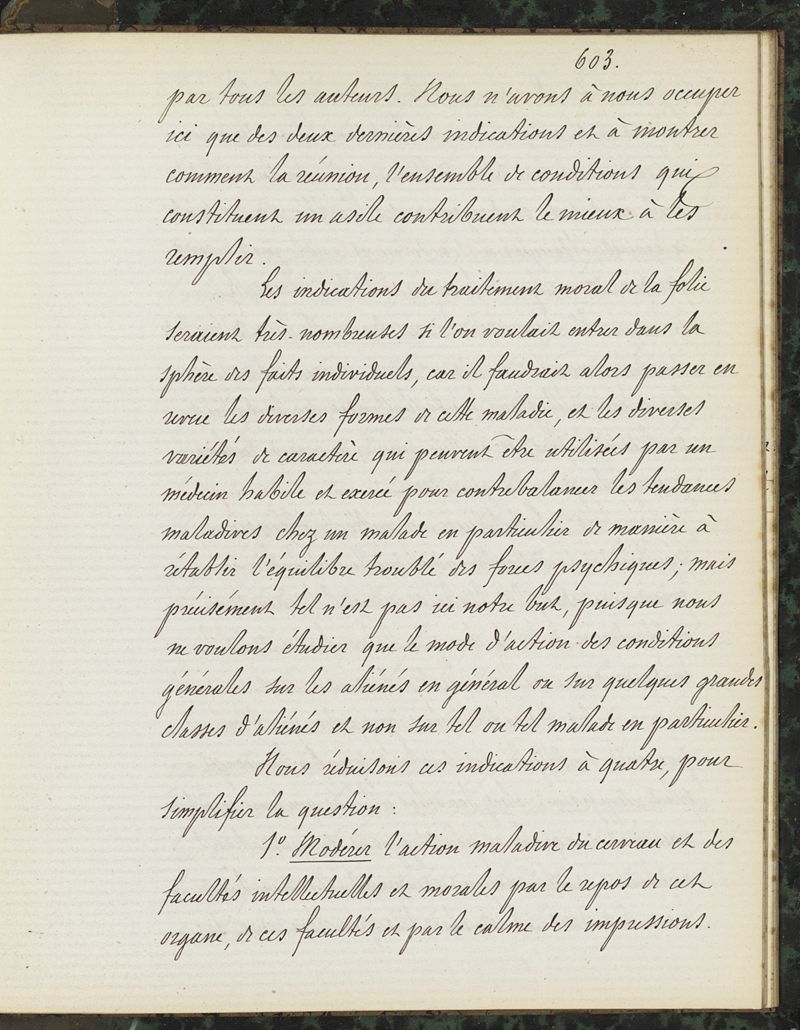 603.
par tous les auteurs. Nous n'avons à nous occuper
ici que des deux dernières indications et à montrer
comment la réunion, l'ensemble de conditions qui
constituent un asile contribuent le mieux à les
remplir.
Les indications du traitement moral de la folie
seraient très-nombreuses si l'on voulait entrer dans la
sphère des faits individuels, car il faudrait alors passer en
revue les diverses formes de cette maladie, et les diverses
variétés de caractère qui peuvent être utilisées par un
médecin habile et exercé pour contrebalancer les tendances
maladives chez un malade en particulier de manière à
rétablir l'équilibre troublé des forces psychiques; mais
précisément tel n'est pas ici notre but, puisque nous
ne voulons étudier que le mode d'action des conditions
générales sur les aliénés en général ou sur quelques grandes
classes d'aliénés et non sur tel ou tel malade en particulier.
Nous réduisons ces indications à quatre, pour
simplifier la question :
1.º Modérer l'action maladive du cerveau et des
facultés intellectuelles et morales par le repos de cet
organe, de ces facultés et par le calme des impressions.